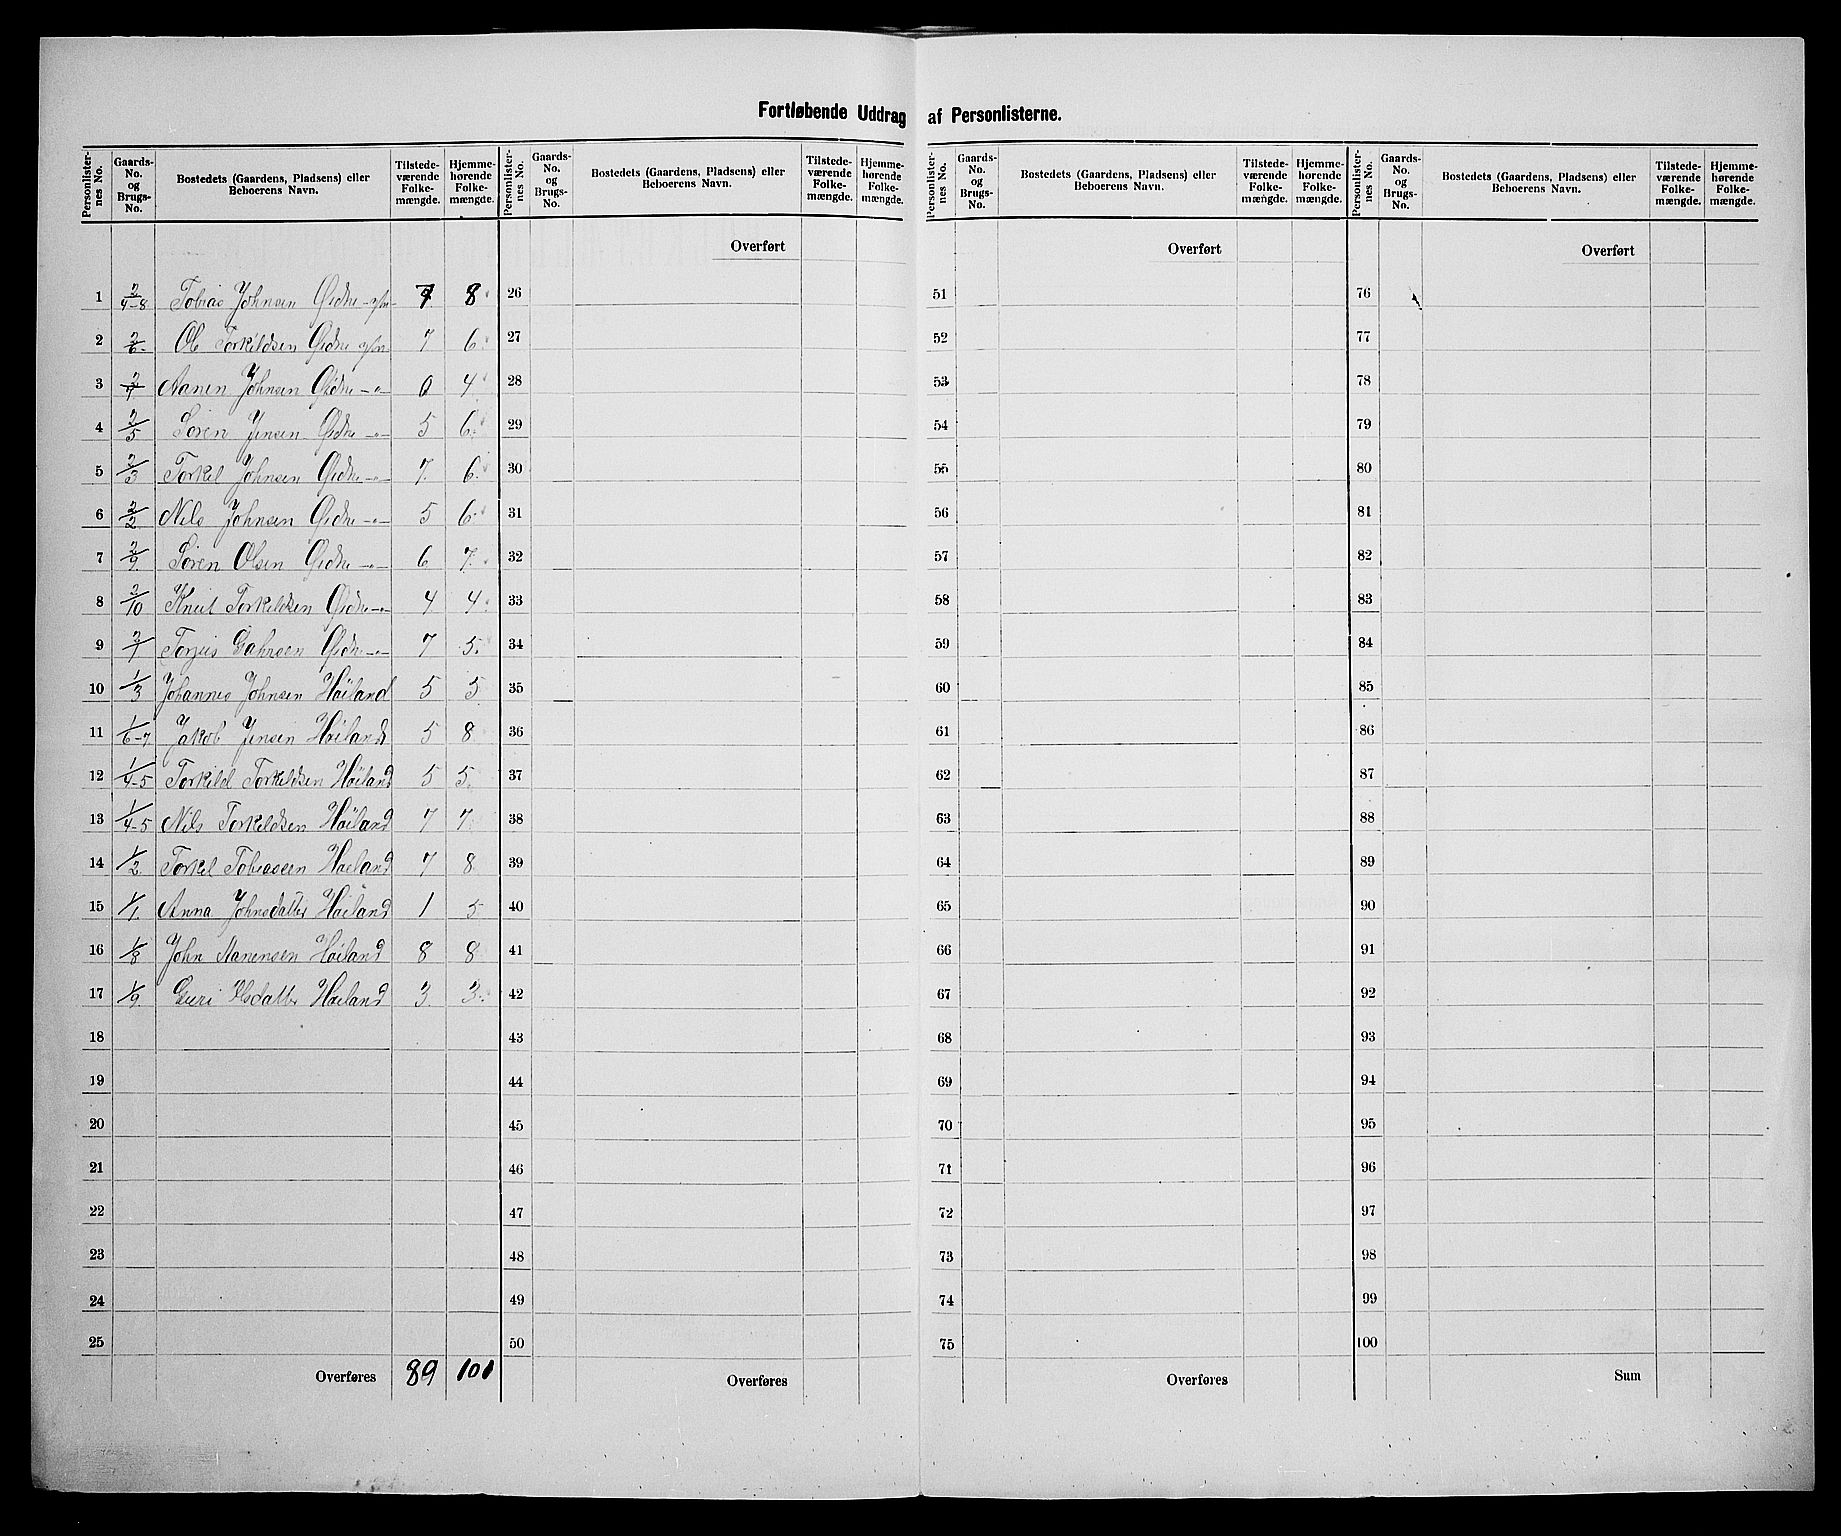 Fortløbende Uddrag af Personlisterne.
Personlister-nes No. Gaards-No. og Brugs-No. Bostedets (Gaardens, Pladsens) eller Beboerens Navn. Tilstede-værende Folke-mængde. Hjemme-hørende Folke-mængde. Personlister-nes No. Gaards-No. og Brugs-No. Bostedets (Gaardens, Pladsens) eller Beboerens Navn. Tilstede-værende Folke-mængde. Hjemme-hørende Folke-mængde. Personlister-nes No. Gaards-No. og Brugs-No. Bostedets (Gaardens, Pladsens) eller Beboerens Navn. Tilstede-værende Folke-mængde. Hjemme-hørende Folke-mængde. Personlister-nes No. Gaards-No. og Brugs-No. Bostedets (Gaardens, Pladsens) eller Beboerens Navn. Tilstede-værende Folke-mængde. Hjemme-hørende Folke-mængde.
Overført Overført Overført
1 2/4-8 Tobias Johnsen 7 8 26 51 76
2 2/6 Ole Torkildsen 7 6 27 52 77
3 2/7 Aanen Johnsen 0 4 28 53 78
4 2/5 Søren Jensen 5 6 29 54 79
5 2/3 Torkel Johnsen 7 6 30 55 80
6 2/2 Nils Johnsen 5 6 31 56 81
7 2/9 Søren Olsen 6 7 32 57 82
8 2/10 Knut Torkildsen 4 4 33 58 83
9 2/1 Torjus 7 5 34 59 84
10 1/3 Johannes Johnsen Høiland 5 5 35 60 85
11 1/6-7 Jakob Jensen Høiland 5 8 36 61 86
12 1/4-5 Torkild Torkildsen Høiland 5 5 37 62 87
13 1/4-5 Nils Torkildsen Høiland 7 7 38 63 88
14 1/2 Torkel Tobiassen Høiland 7 8 39 64 89
15 1/1 Anna Johnsdatter Høiland 1 5 40 65 90
16 1/8 John Aanensen Høiland 8 8 41 66 91
17 1/9 Guri Olsdatter Høiland 3 3 42 67 92
18 43 68 93
19 44 69 94
20 45 70 95
21 46 71 96
22 47 72 97
23 48 73 98
24 49 74 99
25 50 75 100
Overføres 89 101 Overføres Overføres Sum